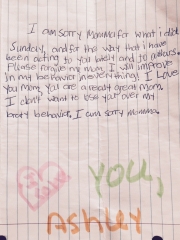 I am sorry Momma for what i did
Sunday, and for the way that i have
been acting to you lately and to others.
Please forgive me mom, I will improve
in my behavior in everything! I Love
you mom, you are a great great mom,
I don't want to lose you over my
bratty behavior, I am sorry momma.
I
YOU,
Ashley